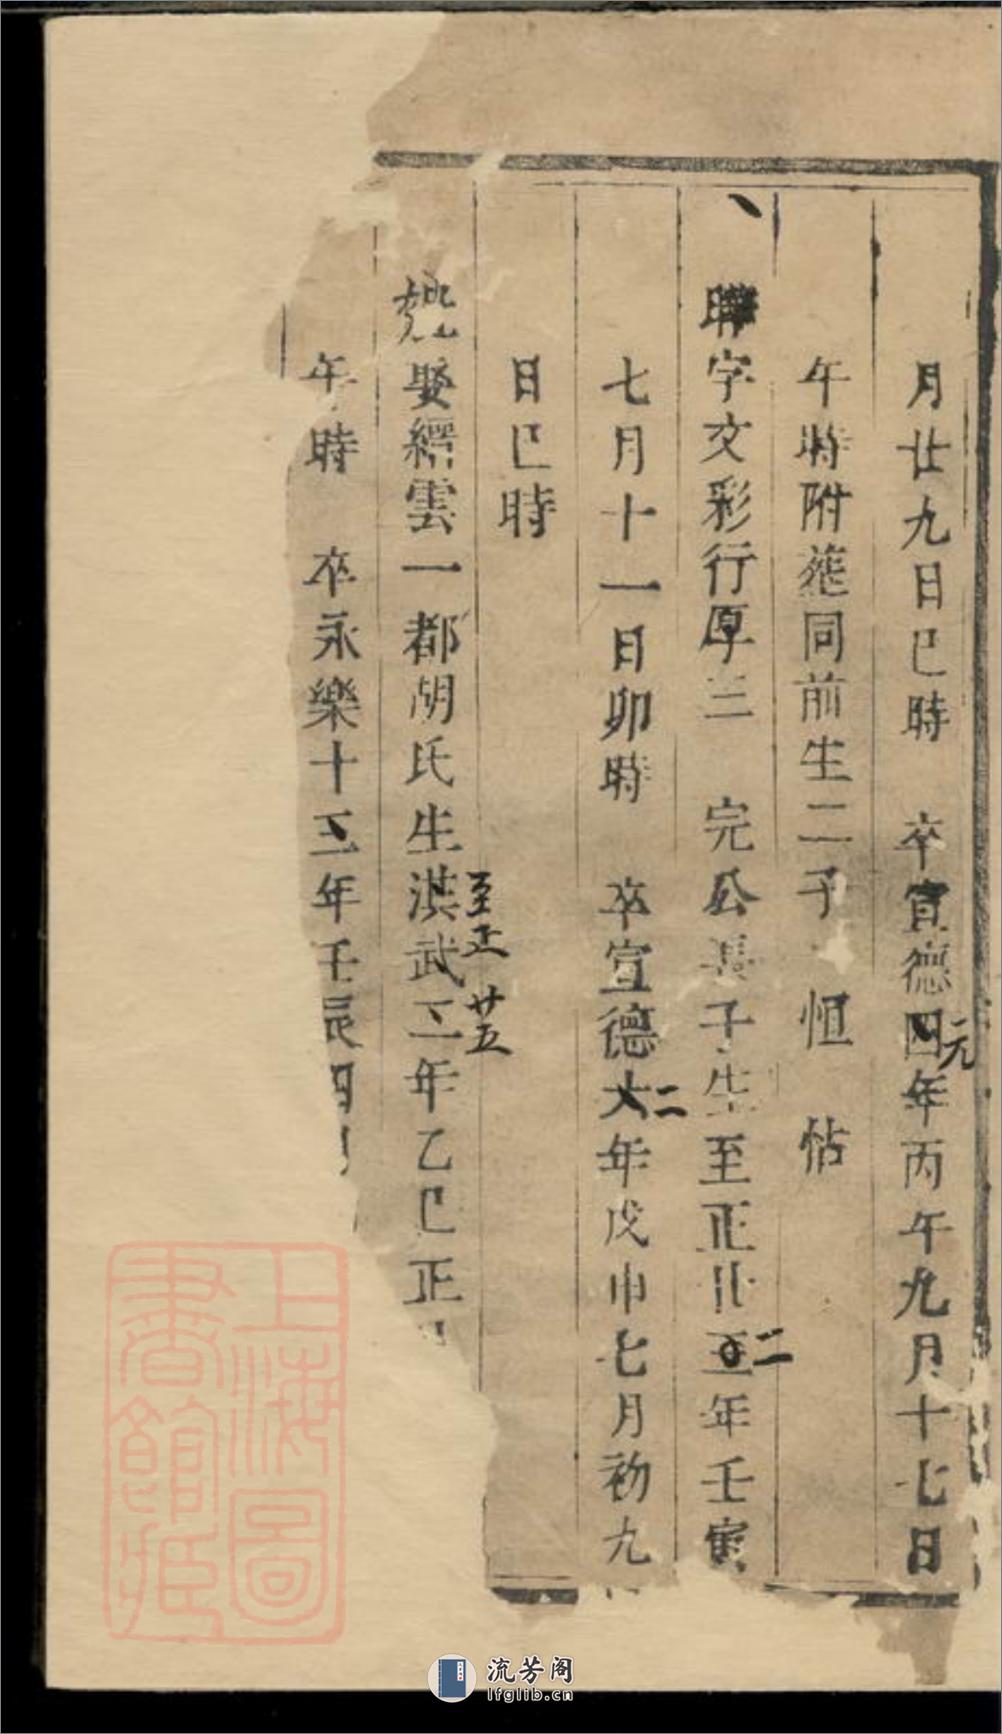 月廿九日巳時　卒宣德四年丙午九月十七日
元
午時附葬同前生二子　恒　帖
聯字文彩行厚三　完公長子生至正廿五年壬寅
二
七月十一日卯時　卒宣德六年戊申七月初九
二
日巳時
娶縉雲一都胡氏生洪武二年乙巳正
至正廿五
午時　卒永樂十三年壬辰四月
上海圖書館藏
流芳阁
lfglib.cn